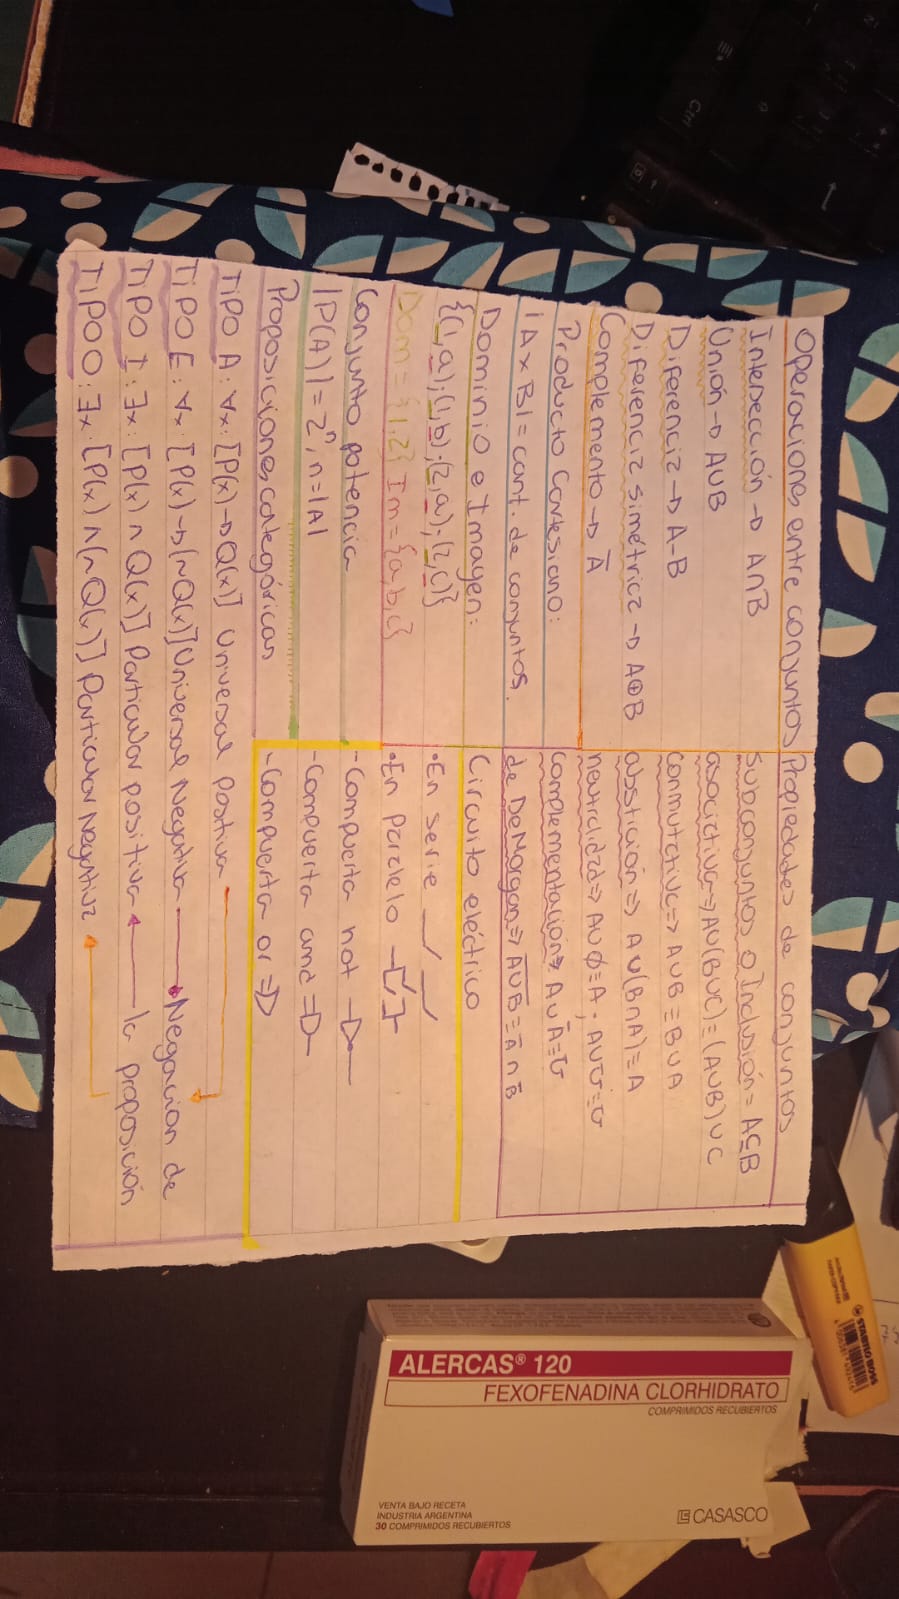 Operaciones entre conjuntos
Intersección → A∩B
Unión → A∪B
Diferencia → A-B
Diferencia simétrica → A⊕B
Complemento → A̅
Producto Cartesiano:
|A×B| = cant. de conjuntos.
Dominio e Imagen:
{(1,a);(1,b);(2,a);(2,c)}
Dom={1,2} Im={a,b,c}
Conjunto potencia
|P(A)|=2ⁿ, n=|A|
Proposiciones categóricas
Propiedades de conjuntos
Subconjuntos o Inclusión= A⊆B
asociativa⇒ A∪(B∪C)=(A∪B)∪C
conmutativa=> A∪B=B∪A
absticion⇒ A∪(B∩A)=A
neutralidad⇒ A∪∅=A ; A∪U=U
complementación⇒ A∪A̅=U
de DeMorgan⇒ A̅∪̅B̅=A̅∩B̅
Circuito eléctrico
•En serie
•En Paralelo
-Compuerta not
-Compuerta and
-Compuerta or
TIPO A: ∀x: [P(x)→Q(x)] Universal Positiva
TIPO E: ∀x: [P(x)→(~Q(x)] Universal Negativa → Negacion de
TIPO I: ∃x: [P(x)∧Q(x)] Particular positiva ← la proposición
TIPO O: ∃x: [P(x)∧(~Q(x)] Particular Negativa
STABILO BOSS
ALERCAS® 120
FEXOFENADINA CLORHIDRATO
COMPRIMIDOS RECUBIERTOS
CASASCO
VENTA BAJO RECETA
INDUSTRIA ARGENTINA
30 COMPRIMIDOS RECUBIERTOS
Ctrl